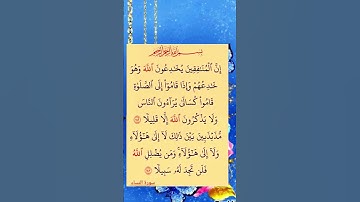 بسم الله الرحمن الرحيم
إِنَّ ٱلْمُنَـٰفِقِينَ يُخَـٰدِعُونَ ٱللَّهَ وَهُوَ
خَـٰدِعُهُمْ وَإِذَا قَامُوٓا۟ إِلَى ٱلصَّلَوٰةِ
قَامُوا۟ كُسَالَىٰ يُرَآءُونَ ٱلنَّاسَ
وَلَا يَذْكُرُونَ ٱللَّهَ إِلَّا قَلِيلًا
مُّذَبْذَبِينَ بَيْنَ ذَٰلِكَ لَآ إِلَىٰ هَـٰٓؤُلَآءِ
وَلَآ إِلَىٰ هَـٰٓؤُلَآءِ ۚ وَمَن يُضْلِلِ ٱللَّهُ
فَلَن تَجِدَ لَهُۥ سَبِيلًا
سورة النساء